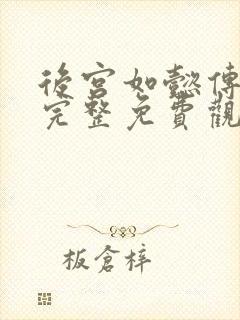 後宮如懿傳
完整免費觀
板倉梓